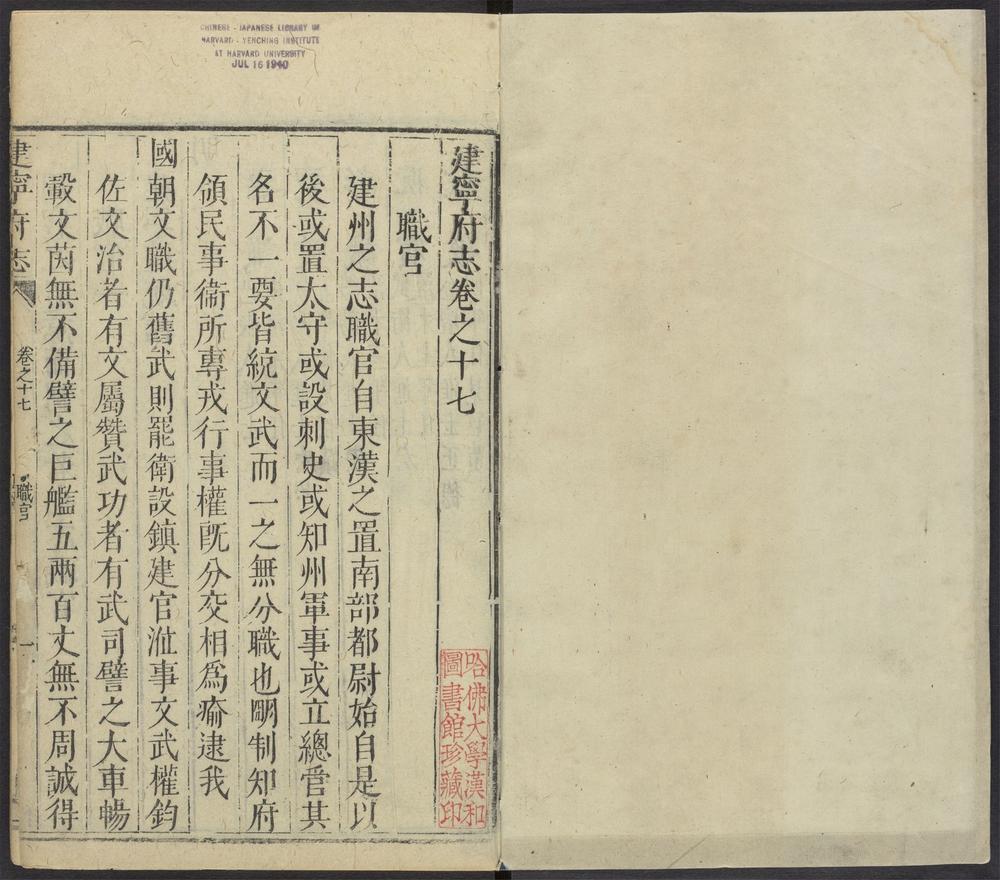 CHINESE - JAPANESE LIBRARY OF
HARVARD - YENCHING INSTITUTE
AT HARVARD UNIVERSITY
JUL 16 1940
建寧府志卷之十七
職官
建州之志職官自東漢之置南部都尉始自是以
後或置太守或設刺史或知州軍事或立總管其
名不一要皆統文武而一之無分職也明制知府
領民事衞所專戎行事權旣分交相爲瘉逮我
國朝文職仍舊武則罷衛設鎮建官涖事文武權鈞
佐文治者有文屬贊武功者有武司譬之大車暢
轂文茵無不備譬之巨艦五兩百丈無不周誠得
建寧府志
卷之十七
職官
一
哈佛大學漢和
圖書館珍藏印